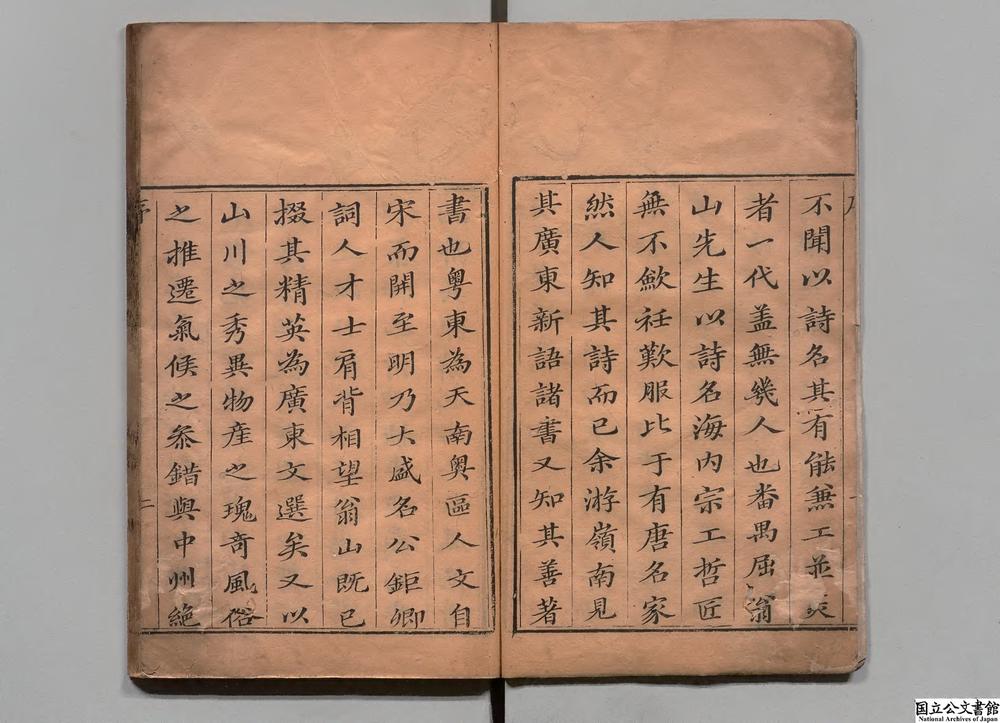 不聞以詩名其有能兼工並美
者一代盖無幾人也畨禺屈翁
山先生以詩名海内宗工哲匠
無不歛衽歎服比于有唐名家
然人知其詩而已余游嶺南見
其廣東新語諸書又知其善著
書也粤東為天南奥區人文自
宋而開至明乃大盛名公鉅卿
詞人才士肩背相望翁山既已
掇其精英為廣東文選矣又以
山川之秀異物産之瑰奇風俗
之推遷氣候之叅錯與中州絶
序
二
国立公文書館
National Archives of Japan